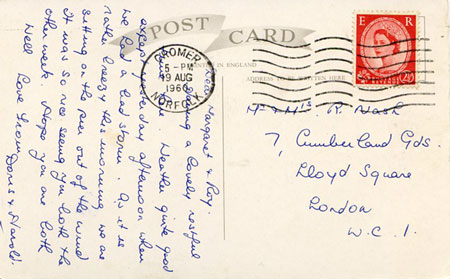 POST CARD
PRINTED IN ENGLAND
ADDRESS TO BE WRITTEN HERE
CROMER
5 - PM
19 AUG
1960
NORFOLK
E R
Dear Margaret & Roy.
having a lovely restful
time here. Weather quite good
except yesterday afternoon when
we had a bad storm. As it is
rather breezy this morning we are
sitting on the pier out of the wind
It was so nice seeing you both the
other week. Hope you are both
well Love from Doris & Harold
Mr & Mrs. R. Nash
7, Cumberland Gds.
Lloyd Square
London
W.C.1.